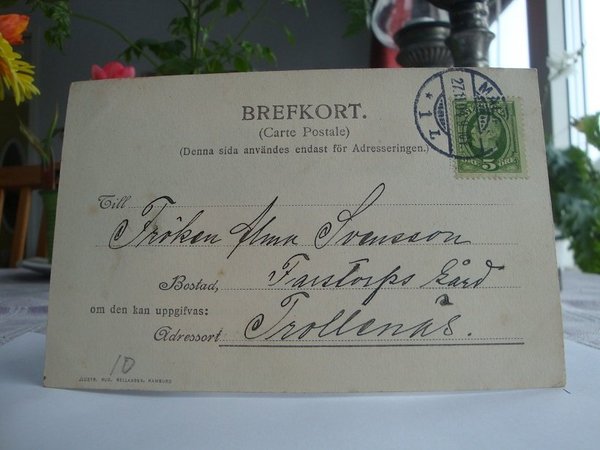 BREFKORT.
(Carte Postale)
(Denna sida användes endast för Adresseringen.)
5 ÖRE
1 L
Till
Fröken Alma Svensson
Bostad, Farstorps Gård
om den kan uppgifvas:
Adressort Trollenäs.
10
HAMBURG